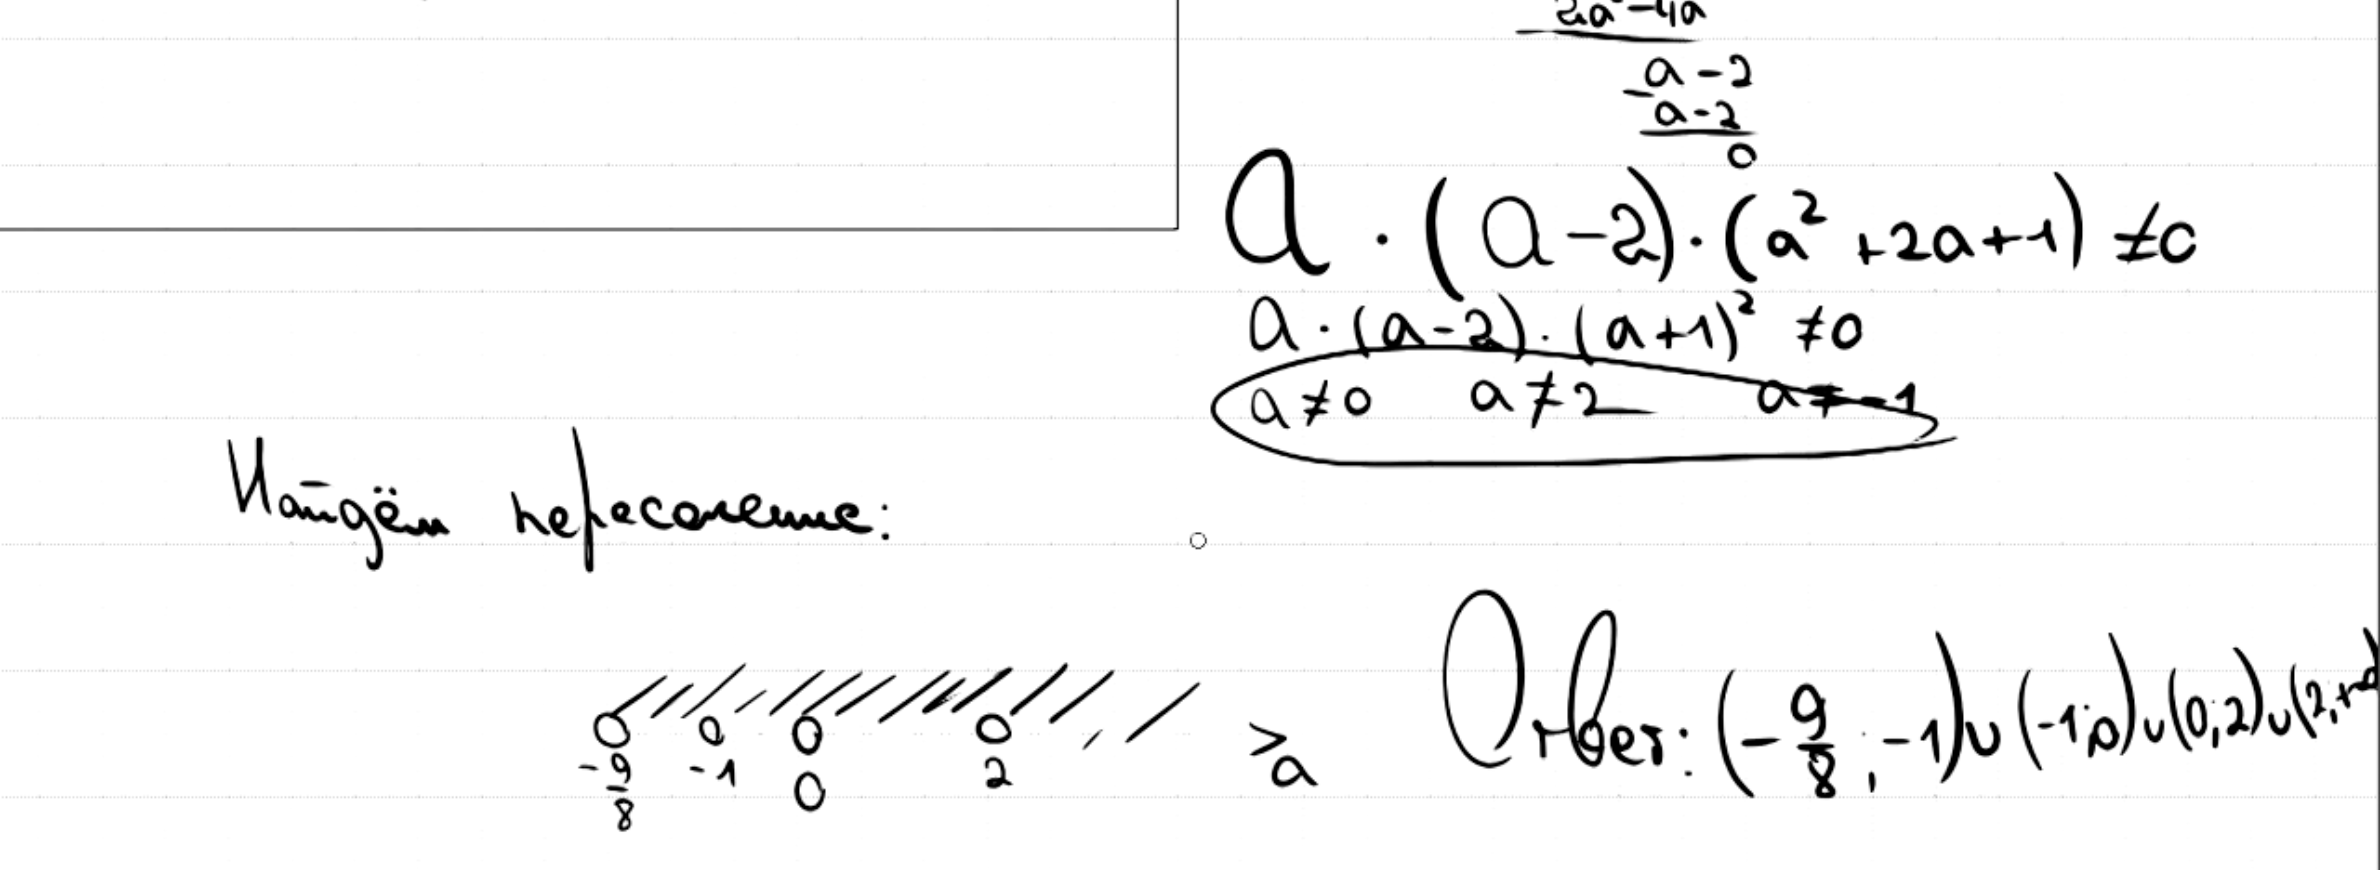 2a² - 4a
a - 2
- a - 2
0
a · (a - 2) · (a² + 2a + 1) ≠ 0
a · (a - 2) · (a + 1)² ≠ 0
a ≠ 0 a ≠ 2 a ≠ -1
Найдём пересечение:
-9/8 -1 0 2 a
Ответ: (-9/8; -1) ∪ (-1; 0) ∪ (0; 2) ∪ (2; +∞)